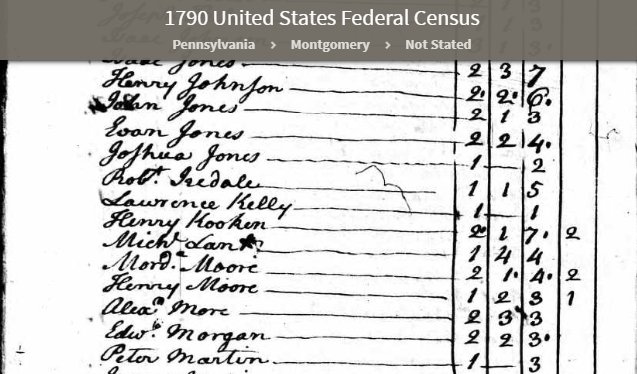 1790 United States Federal Census
Pennsylvania > Montgomery > Not Stated
Isaac Jones 2 3 7
Henry Johnson 2 2 6
John Jones 2 1 3
Evan Jones 2 2 4
Joshua Jones 1 — 2
Robt. Iredale 1 1 5
Lawrence Kelly 1 — 1
Henry Kooken 2 1 7 2
Michl 1 4 4
Mord. Moore 2 1 4 2
Henry Moore 1 2 3 1
Alexr More 2 3 3
Edwd. Morgan 2 2 3
Peter Martin 1 — 3